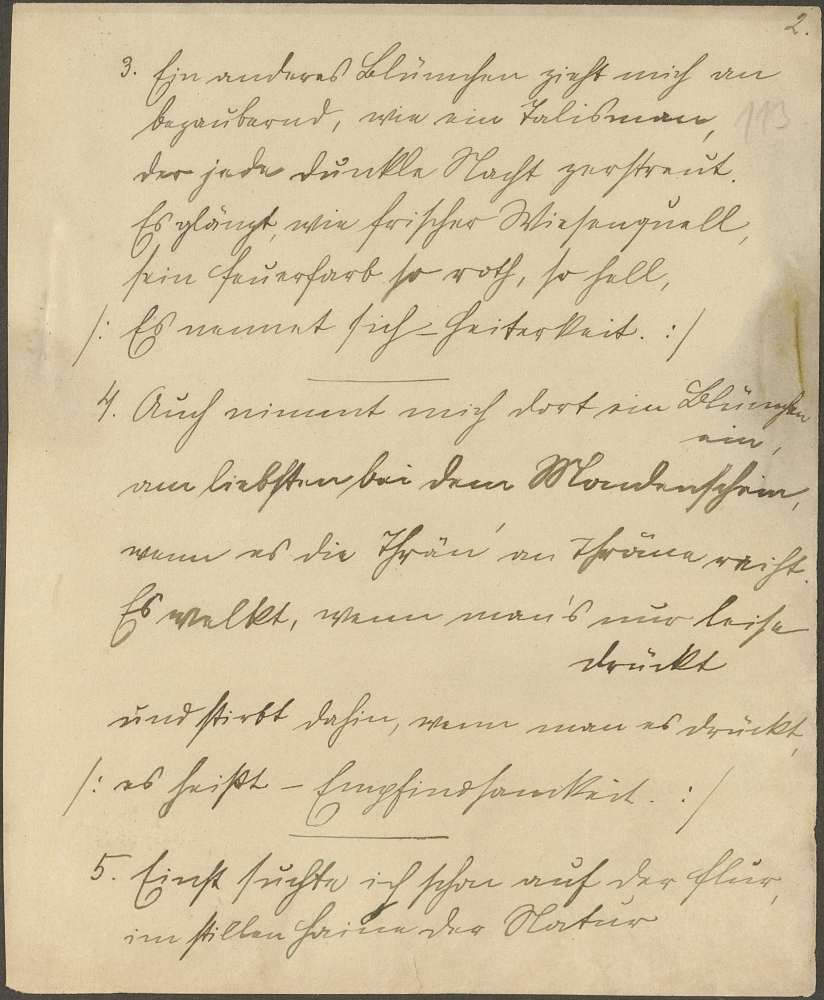 2.
3. Ein anderes Blümchen zieht mich an
bezaubernd, wie ein Talisman,
113
der jede dunkle Nacht zerstreut.
Es glänzt, wie frischer Wiesenquell,
sein Feuerfarb so roth, so hell,
/: Es nennet sich – Heiterkeit. :/
4. Auch nimmt mich dort ein Blümchen
ein,
am liebsten bei dem Mondenschein,
wenn es die Thrän' an Thräne reiht.
Es welkt, wenn man's nur leise
drückt
und stirbt dahin, wenn man es drückt,
/: es heißt – Empfindsamkeit. :/
5. Einst suchte ich schon auf der Flur,
im stillen Haine der Natur